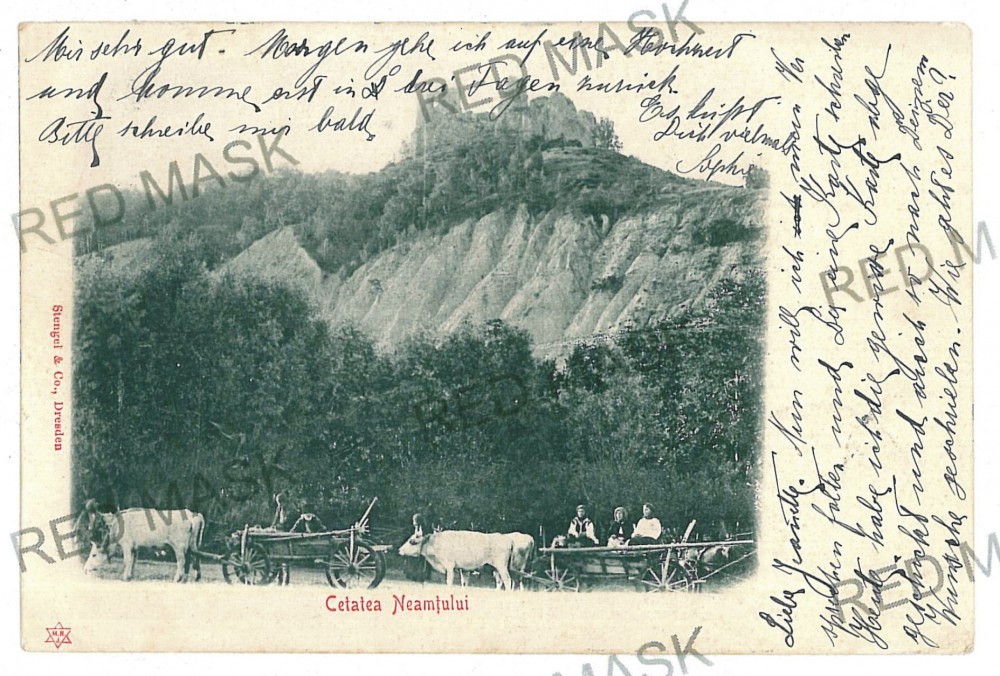 Liebe Jeanette. Nun will ich mein Ver
sprechen halten und Dir eine Karte schreiben
Heute habe ich die gewisse Karte
geschickt und auch so nach Deinem
Wunsche geschrieben. Wie geht es Dir?
Mir sehr gut. Morgen gehe ich auf eine Hochzeit
und komme erst in 2 drei Tagen zurück.
Bitte schreibe mir bald.
Es küßt
Dich vielmals
Sophie
Stengel & Co., Dresden
Cetatea Neamțului
M.R.
J.
RED MASK
RED MASK
RED MASK
RED MASK
RED MASK
RED MASK
RED MASK
RED MASK